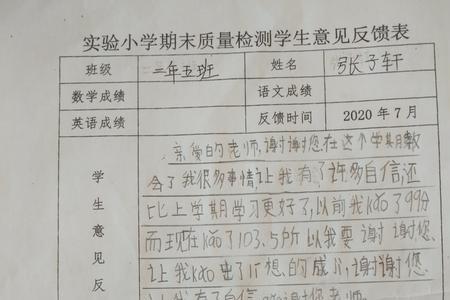 实验小学期末质量检测学生意见反馈表
班级 二年五班 姓名 张子轩
数学成绩 语文成绩
英语成绩 反馈时间 2020年7月
学生意见反
亲爱的老师,谢谢您在这个学期教
会了我很多事情,让我有了许多自信,还
比上学期学习更好了,以前我kǎo了99分
而现在kǎo了103.5所以我要谢谢您,
让我kǎo出了理想的成,谢谢您
我有了自信 谢谢您老师